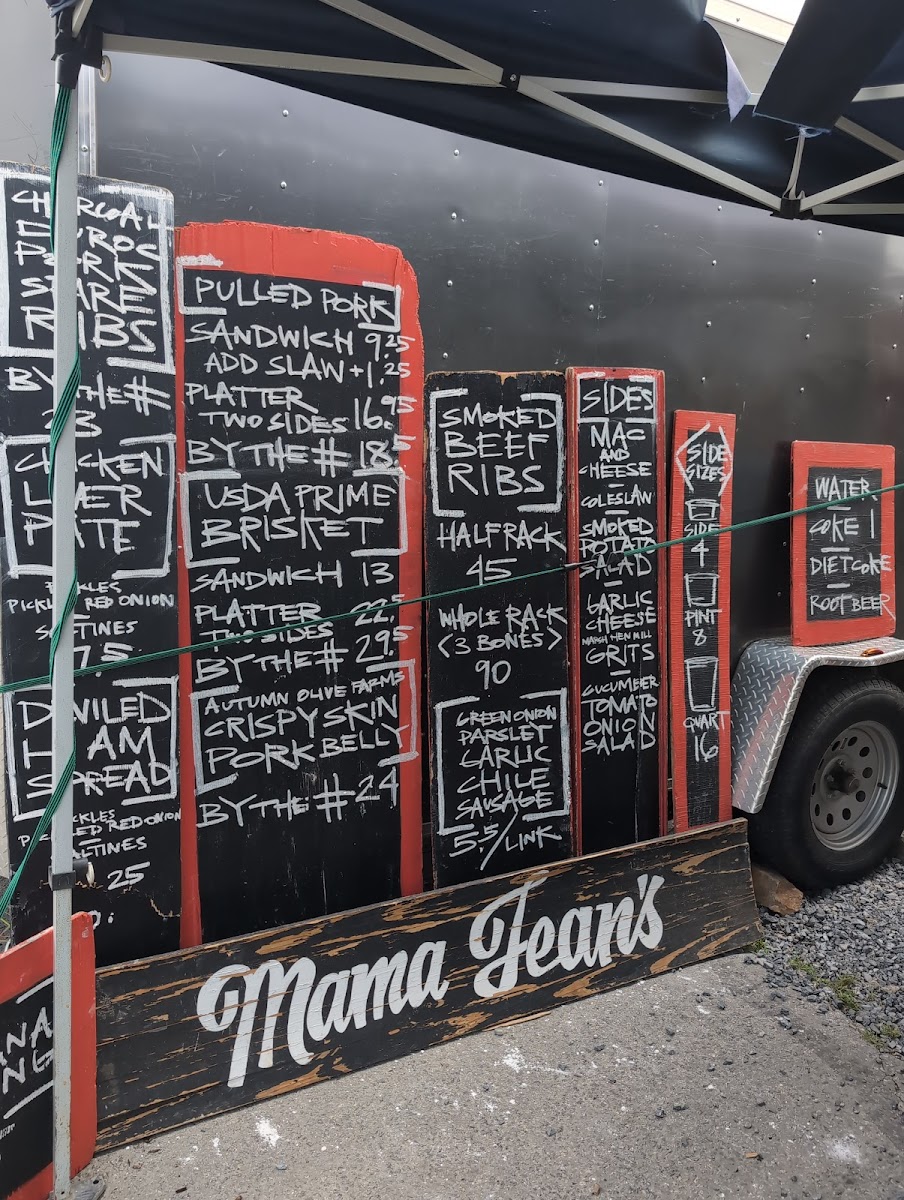 RIBS
BY THE #
PLATE
PICKLED RED ONION
SPREAD
25
PULLED PORK
SANDWICH 9.25
ADD SLAW +1.25
PLATTER
TWO SIDES 16.95
BY THE # 18.5
USDA PRIME
BRISKET
SANDWICH 13
PLATTER 22.5
TWO SIDES
BY THE # 29.5
AUTUMN OLIVE FARMS
CRISPY SKIN
PORK BELLY
BY THE # 24
SMOKED
BEEF
RIBS
HALF RACK
45
WHOLE RACK
<3 BONES>
90
GREEN ONION
PARSLEY
GARLIC
CHILE
SAUSAGE
5.5/LINK
SIDES
MAC
AND
CHEESE
COLESLAW
SMOKED
POTATO
SALAD
GARLIC
CHEESE
MARSH HEN MILL
GRITS
CUCUMBER
TOMATO
ONION
SALAD
<SIDE
SIZES>
SIDE
4
PINT
8
QUART
16
WATER
COKE 1
DIET COKE
ROOT BEER
Mama Jean's